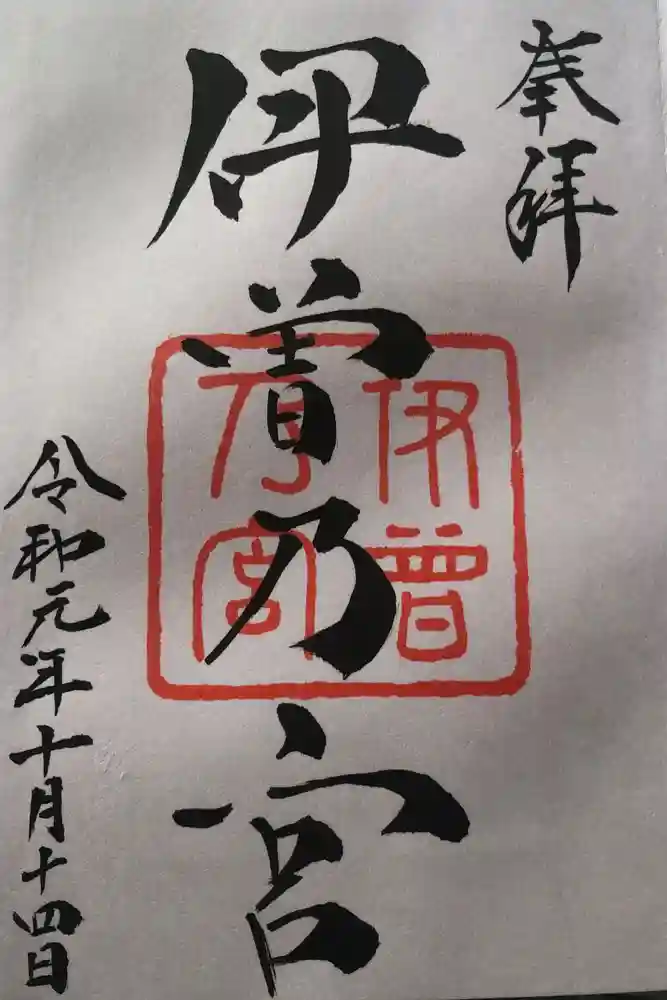 奉拝
伊曽乃宮
伊曽
乃宮
令和元年十月十四日